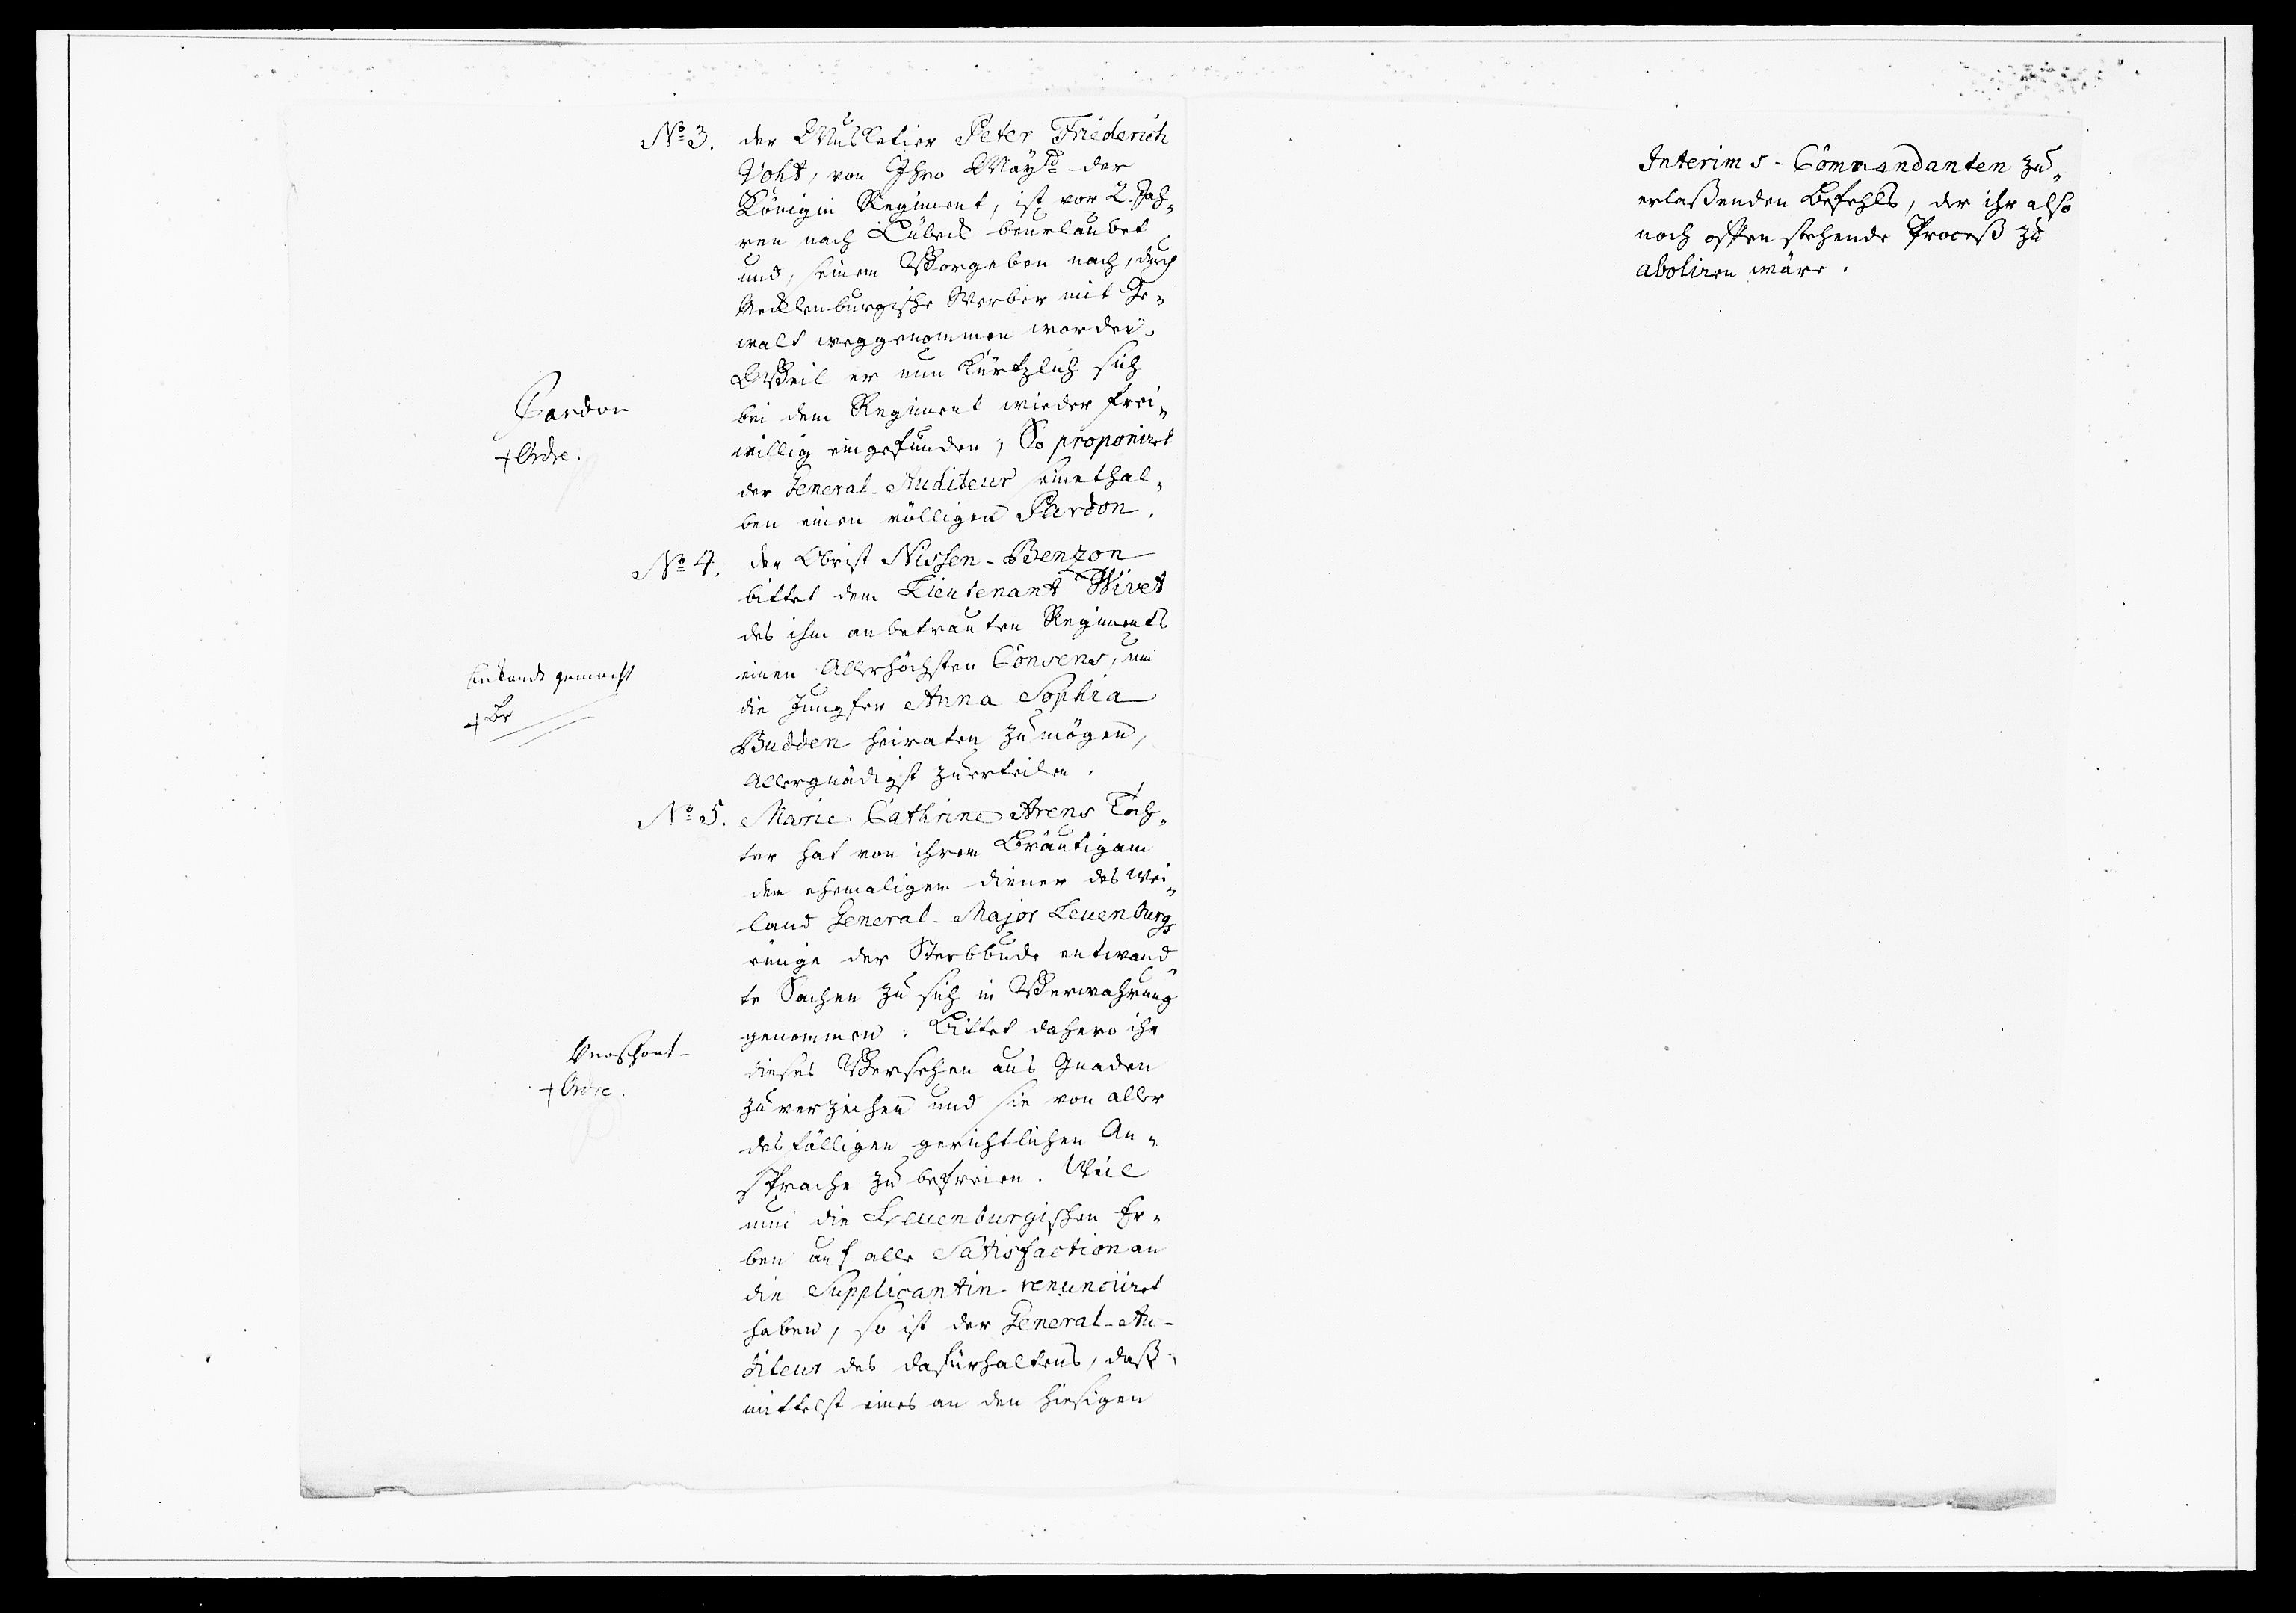 No 3. der Musketier Peter Friederich
Voht, von Ihro Mayᵗᵗ der
Königin Regiment, ist vor 2. Jah-
ren nach Lübeck beurlaubet
und, seinem Vorgeben nach, durch
Mecklenburgische Werber mit Ge-
walt weggenommen worden.
Weil er nun kürtzlich sich
bei dem Regiment wieder frei-
willig eingefunden; So proponiret
der General-Auditeur seinethal-
ben einen völligen Pardon.
Pardon
+ Ordre.
No 4. der Obrist Nissen-Benzon
bittet dem Lieutenant Wivet
des ihm anbetrauten Regiments
einen Allerhöchsten Consens, um
die Jungfer Anna Sophia
Budden heiraten zu mögen,
Allergnädigst zu erteilen.
bekandt gemacht
+ Br
No 5. Marie Cathrine Arens Toch-
ter hat von ihrem Bräutigam
dem ehemaligen diener des wei-
land General-Major Leuenburg
einige der Sterbbude entwand-
te Sachen zu sich in Verwahrung
genommen: Bittet dahero ihr
dieses Versehen aus Gnaden
zu verzeihen und sie von aller
desfälligen gerichtlichen An-
sprache zu befreien. Weil
nun die Leuenburgischen Er-
ben auf alle Satisfaction an
die Supplicantin renunciiret
haben, so ist der General-Au-
diteur des dafürhaltens, daß
mittelst eines an den hiesigen
Verschont
+ Ordre.
Interims-Commandanten zu
erlaßenden Befehls, der ihr also
noch offen stehende Proceß zu
aboliren wäre.